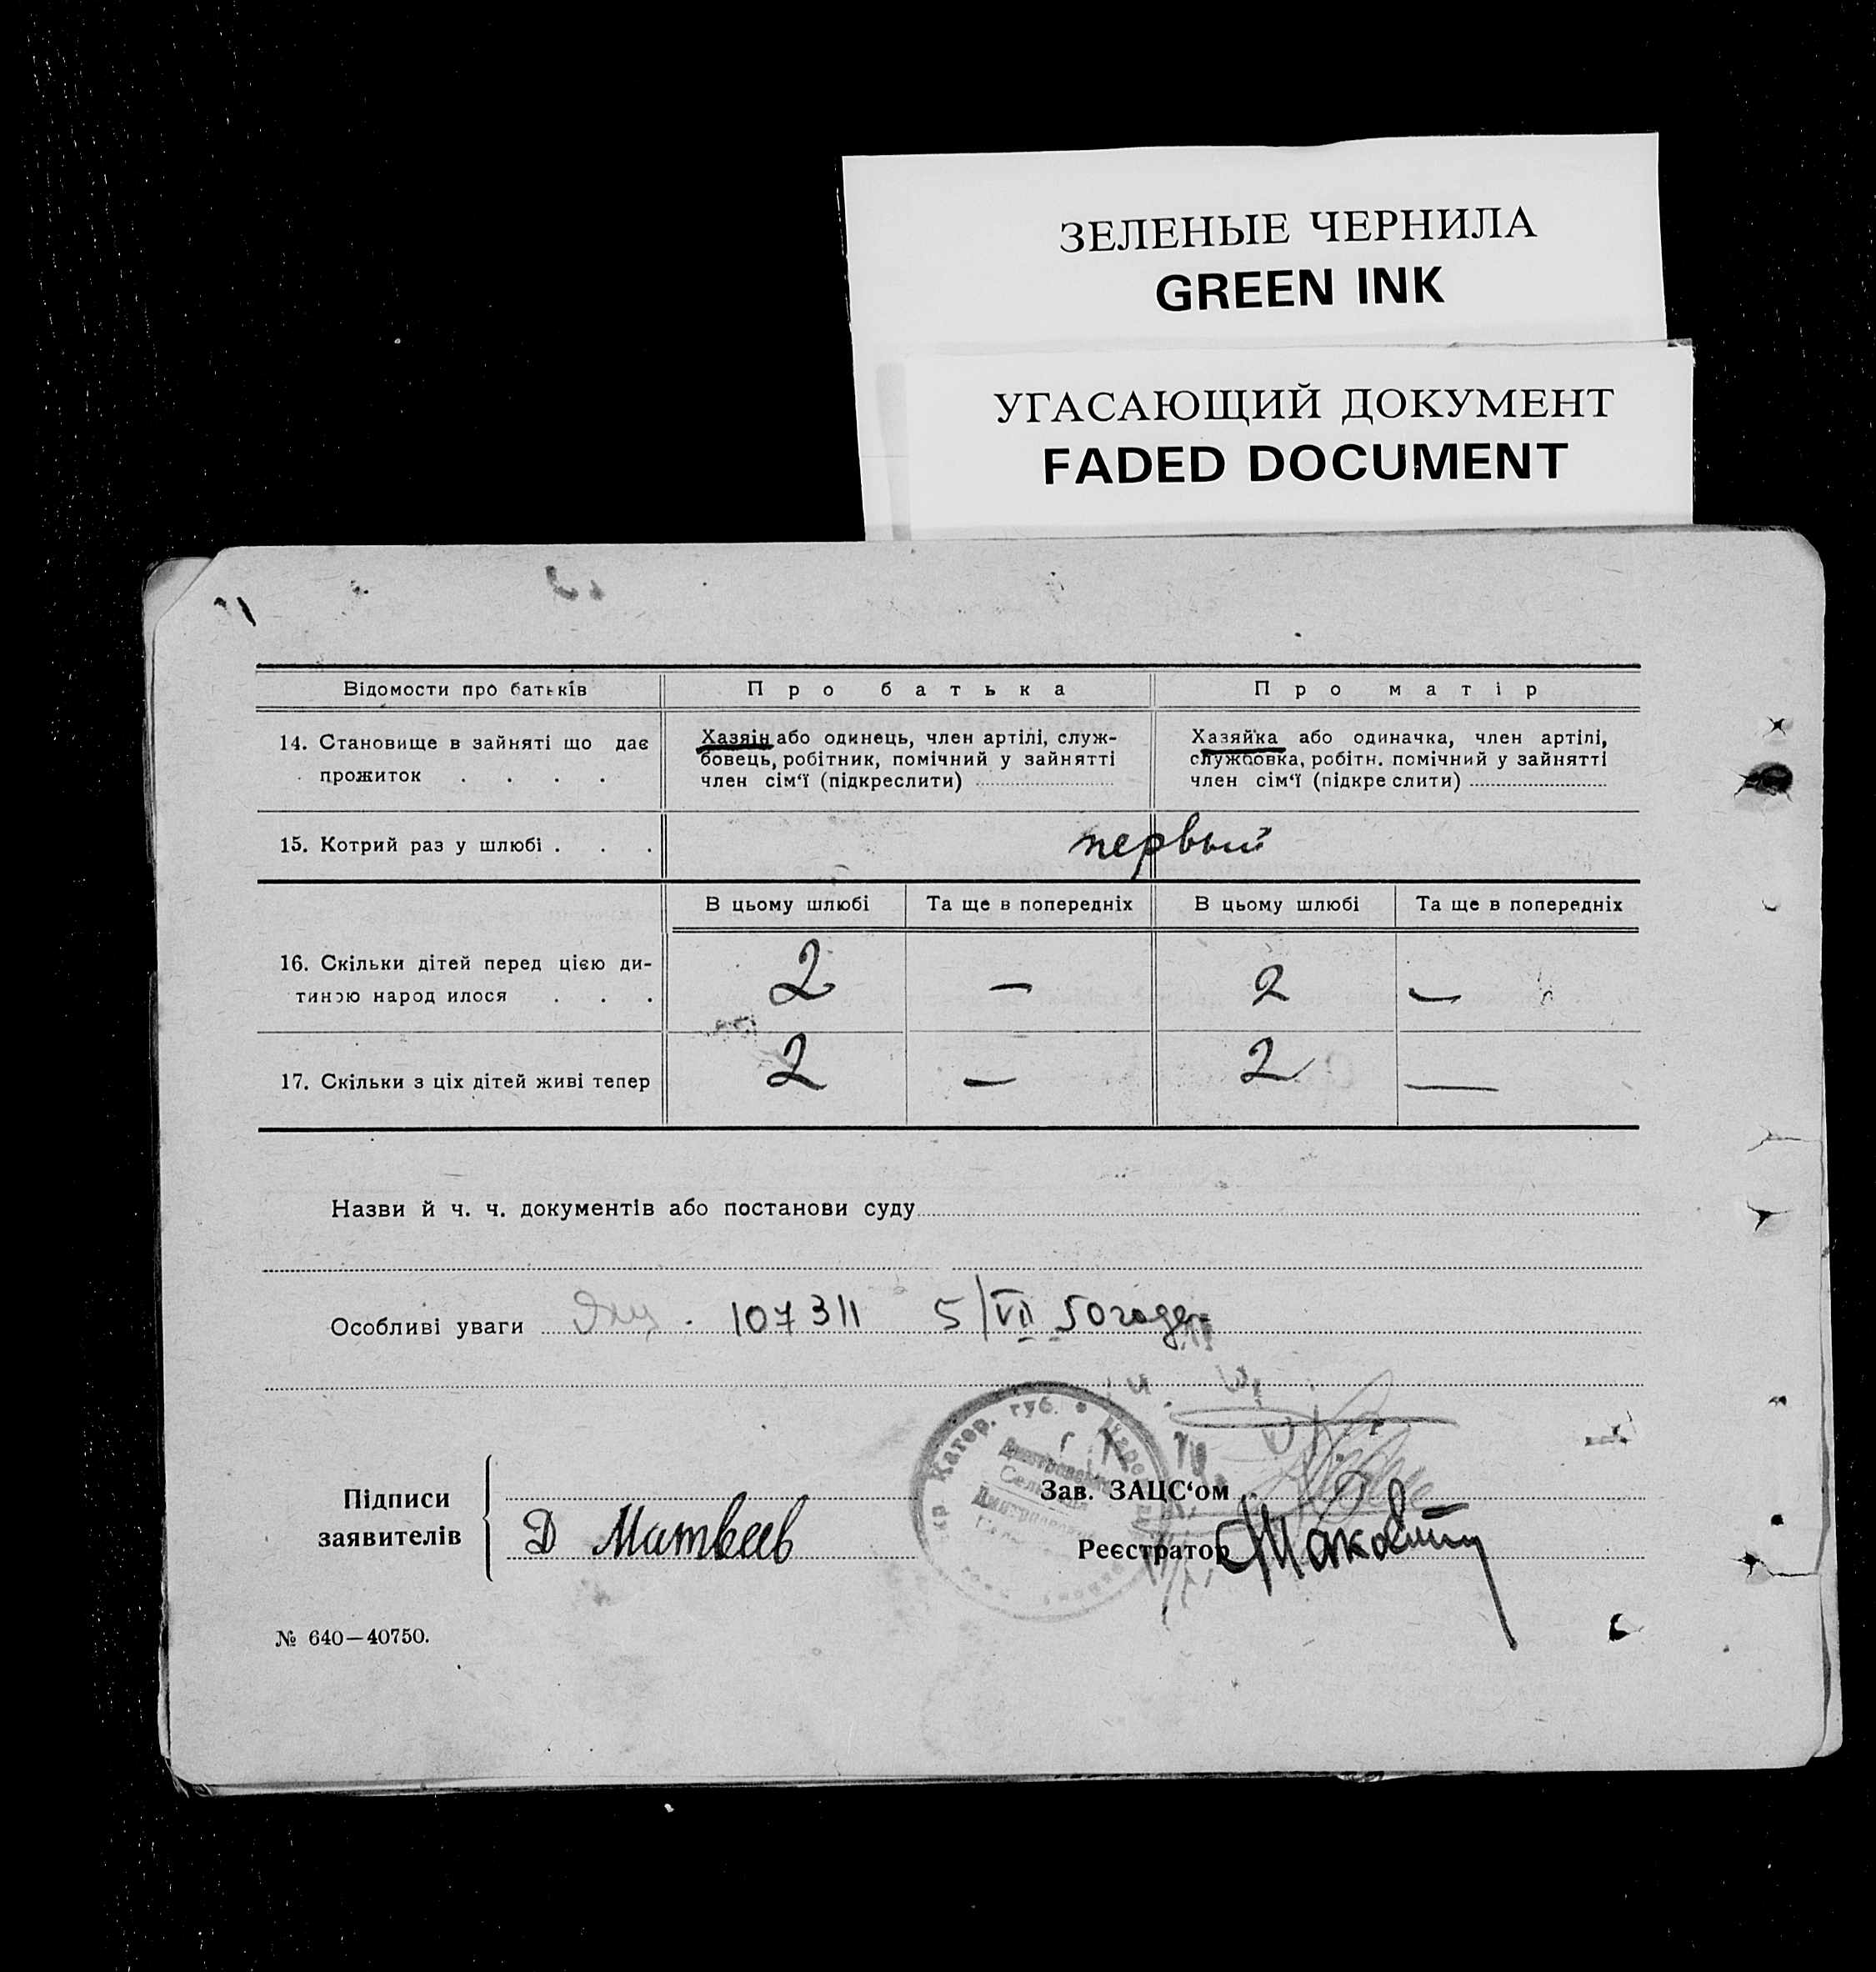 ЗЕЛЕНЫЕ ЧЕРНИЛА
GREEN INK
УГАСАЮЩИЙ ДОКУМЕНТ
FADED DOCUMENT
Відомости про батьків
Про батька
Про матір
14. Становище в зайняті що дає
прожиток . . . .
Хазяін або одинець, член артілі, служ-
бовець, робітник, помічний у зайнятті
член сім‘ї (підкреслити)
Хазяйка або одиначка, член артілі,
службовка, робітн. помічний у зайнятті
член сім‘ї (підкре слити)
15. Котрий раз у шлюбі . . .
первый
В цьому шлюбі
Та ще в попередніх
В цьому шлюбі
Та ще в попередніх
16. Скільки дітей перед цією ди-
тиною народ илося . . .
2 — 2 —
17. Скільки з ціх дітей живі тепер
2 — 2 —
Назви й ч. ч. документів або постанови суду
Особливі уваги 107311 5/VII 50 года
Катер. губ.
Підписи
заявителів
Д Матвеев
Зав. ЗАЦС‘ом
Реєстратор
№ 640—40750.